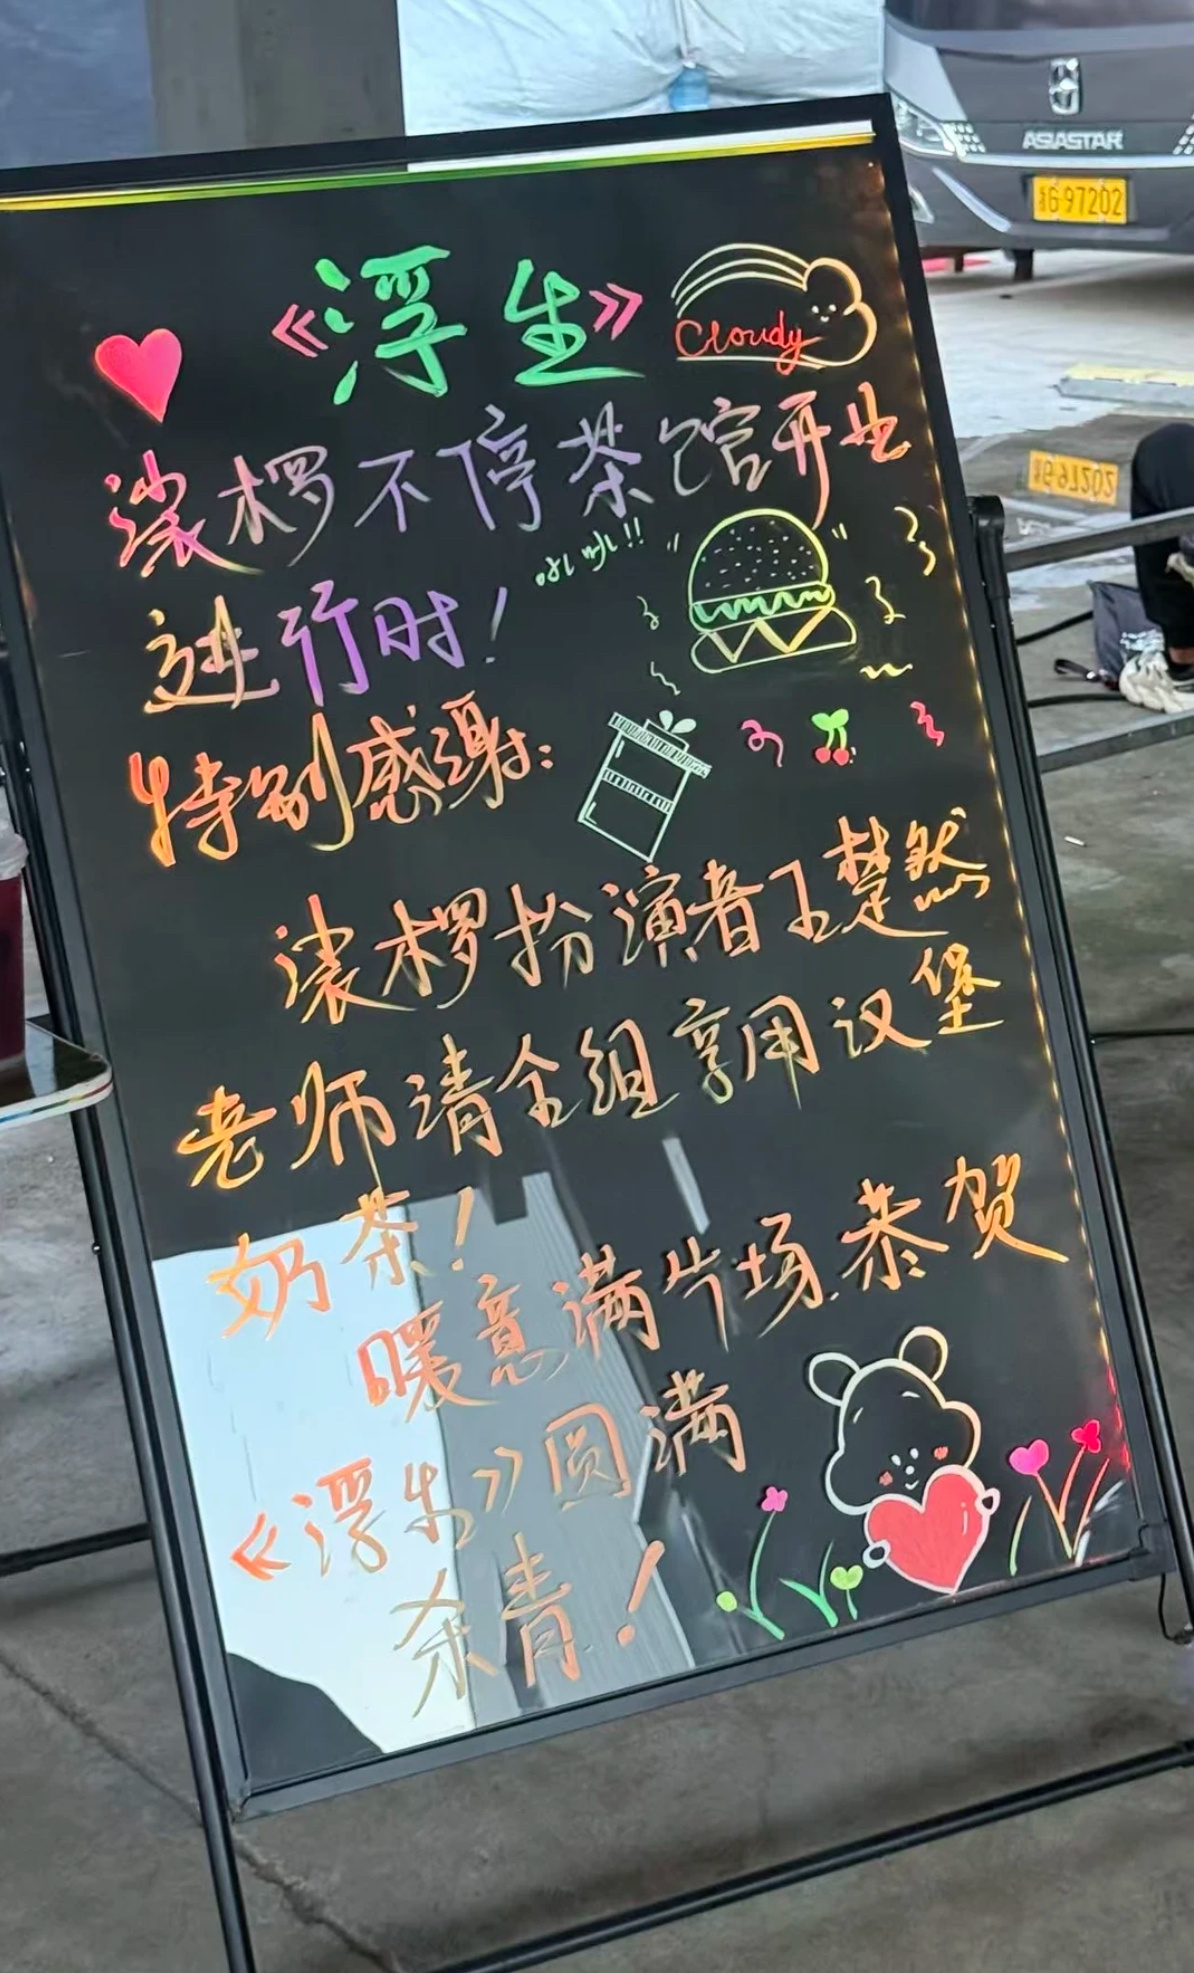 《浮生》
Cloudy
裟椤不停茶馆开业
进行时！
特别感谢：
裟椤扮演者王楚然
老师请全组享用汉堡
奶茶！
暖意满片场.恭贺
《浮生》圆满
杀青！
ASIASTAR
G·97202